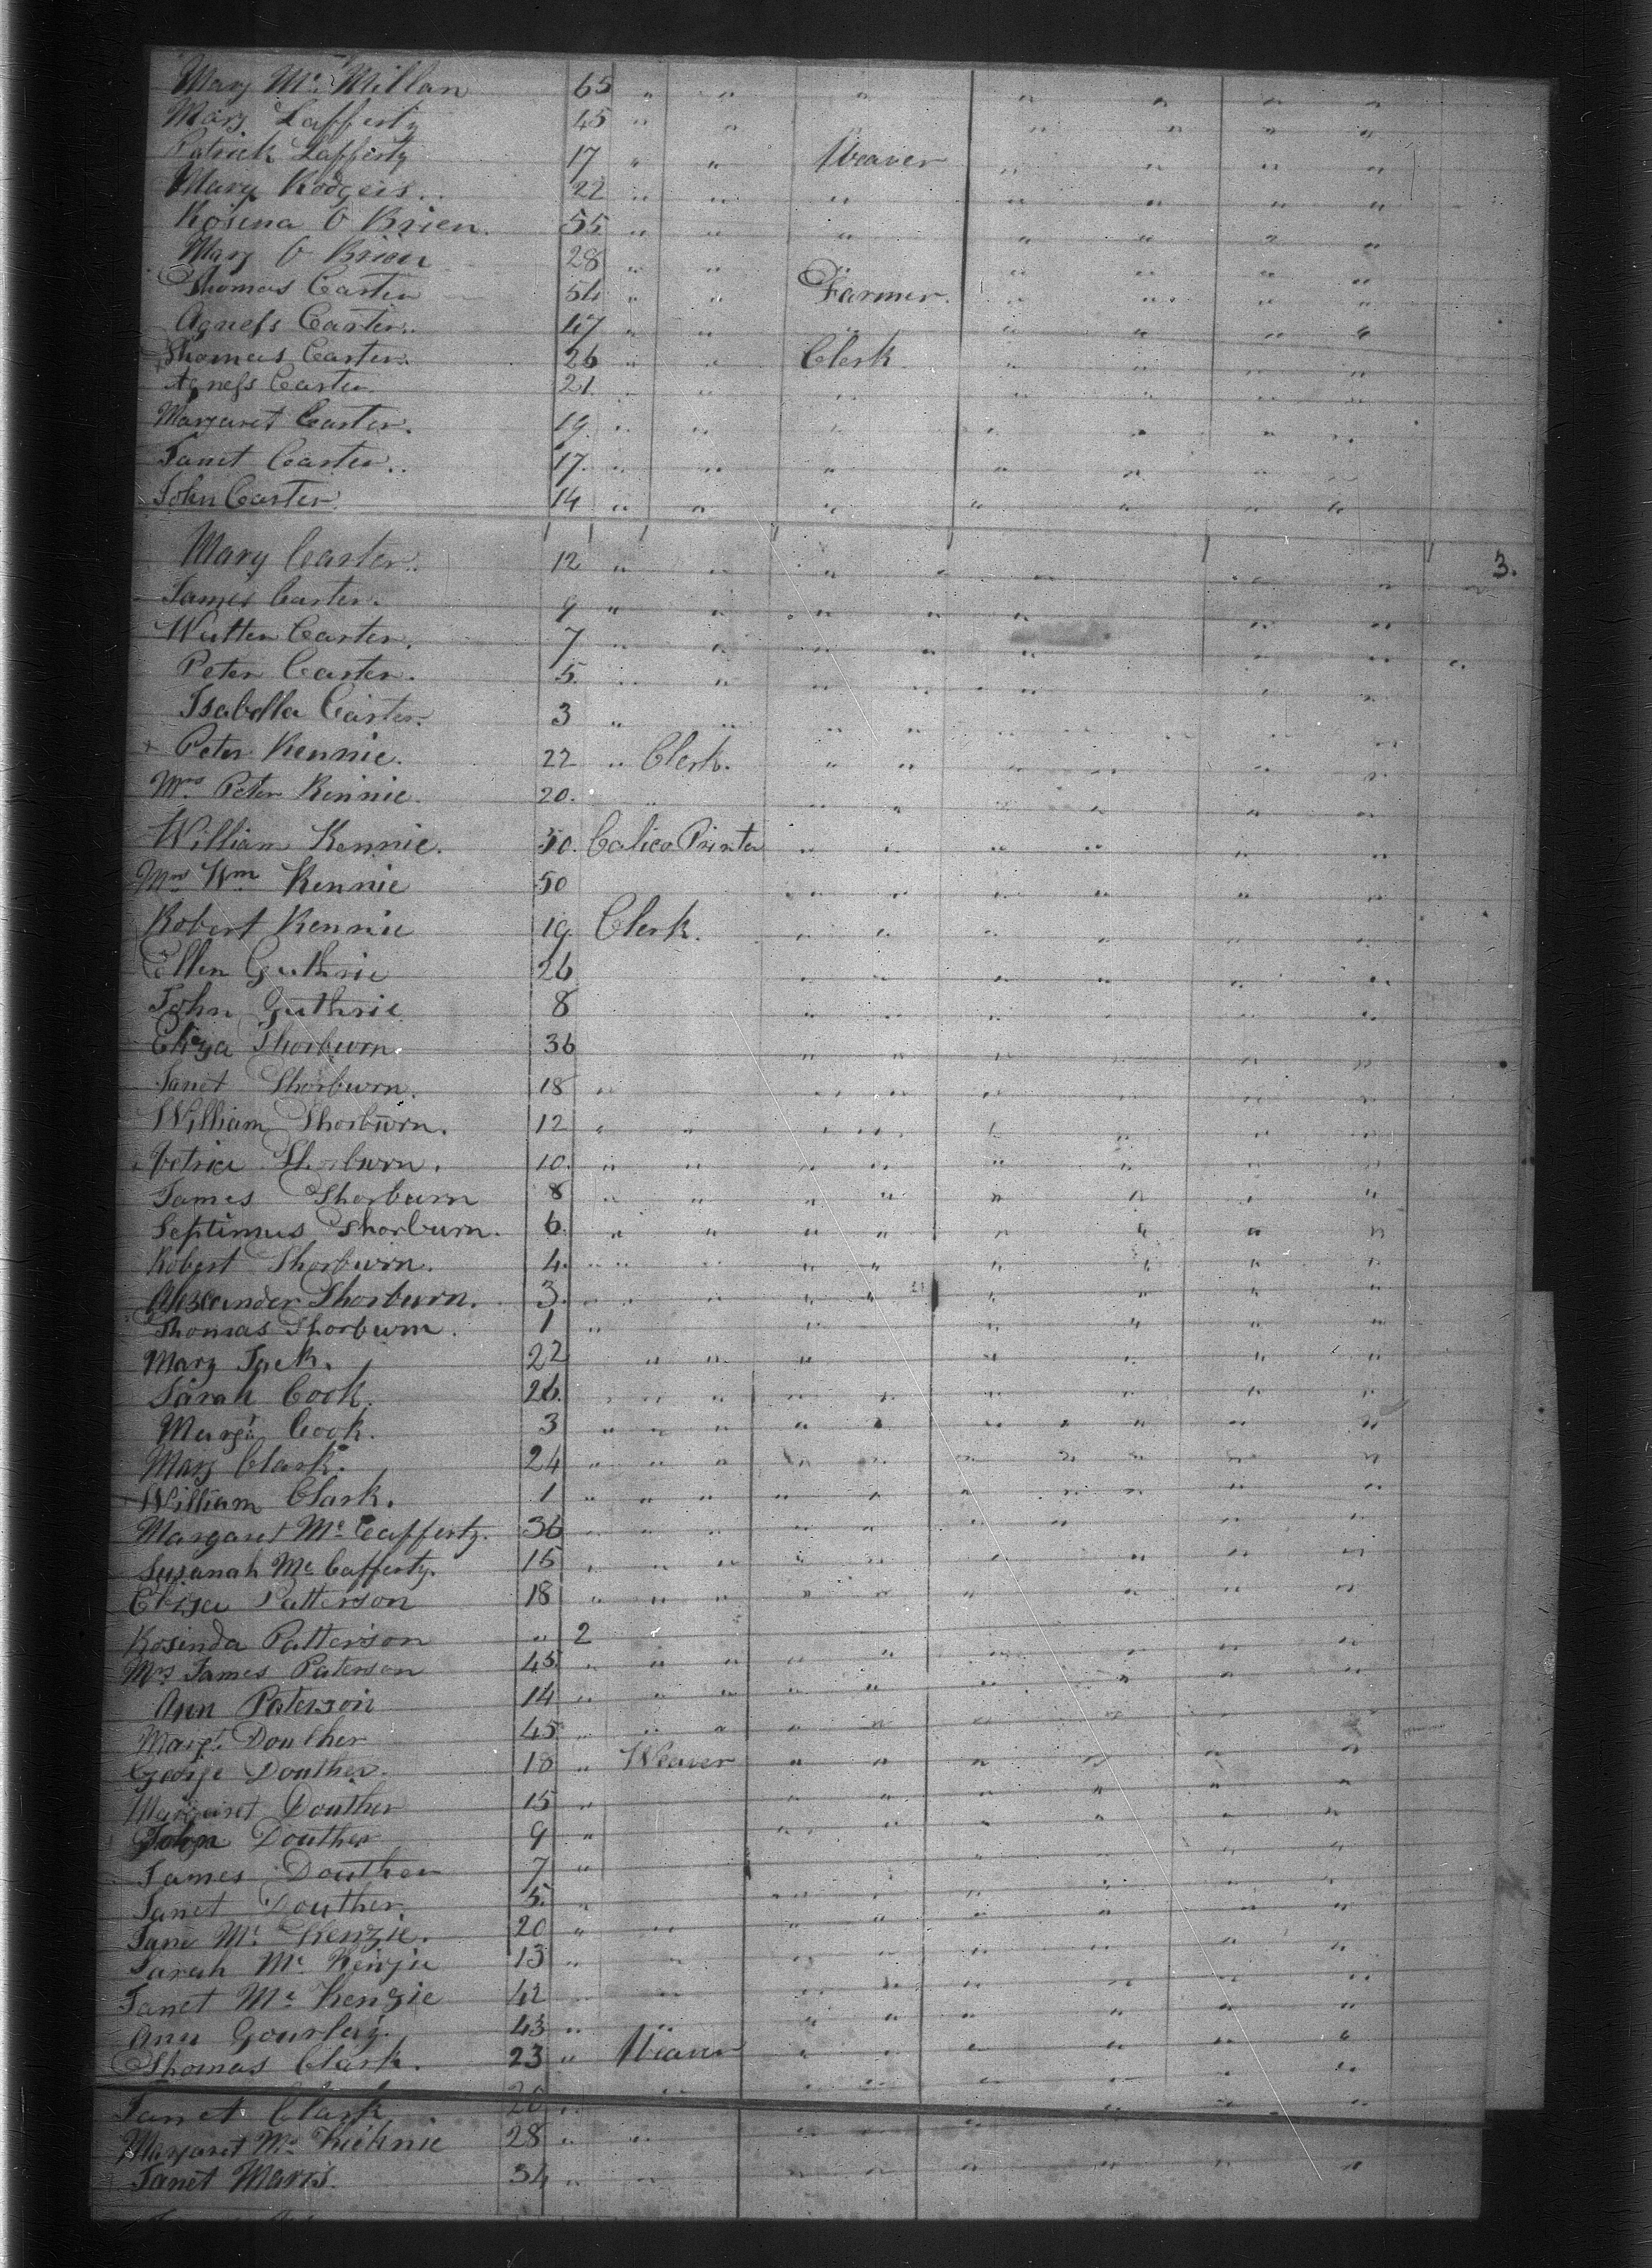 Mary Mc Millan 65 " " " " " " "
Mary Lafferty 45 " " " " " "
Patrick Lafferty 17 " " Weaver " " " "
Mary Rodgers 22 " " " " " " "
Rosina O Brien. 55 " " " " " " "
Mary O Brien 28 " " " " " " "
Thomas Carter 54 " " Farmer. " " " "
Agness Carter. 47 " " " " " " "
Thomas Carter. 26 " " Clerk " " " "
Agness Carter 21. " " " " " " "
Margaret Carter. 19. " " " " " " "
Janet Carter. 17. " " " " " " "
John Carter 14 " " " " " " "
3.
Mary Carter. 12 " " " " " " "
James Carter. 9 " " " " " " "
Carter. 7 " " " " " " "
Peter Carter. 5. " " " " " " "
Isabella Carter. 3 " " " " " " "
Peter Rennie. 22 " Clerk. " " " " " "
Mrs Peter Rennie. 20. " " " " " " "
William Rennie. 50. Calico Printer " " " " " "
Mrs Wm Rennie 50 " " " " " "
Robert Rennie 19. Clerk. " " " " " "
Ellen Guthrie 26 " " " " " "
John Guthrie 8 " " " " " "
Eliza Thorburn. 36 " " " " " "
Janet Thorburn. 18 " " " " " " "
William Thorburn. 12 " " " " " " " "
Thorburn. 10. " " " " " " " "
James Thorburn 8 " " " " " " " "
Septimus Thorburn. 6. " " " " " " " "
Robert Thorburn. 4. " " " " " " " "
Alexander Thorburn. 3. " " " " " " " "
Thomas Thorburn. 1 " " " " " "
Mary Jack. 22 " " " " " " "
Sarah Cook. 26. " " " " " " " " "
Margt Cook. 3 " " " " " " " " " "
Mary Clark. 24 " " " " " " " " " "
William Clark. 1 " " " " " " " " " "
Margaret Mc Cafferty. 36 " " " " " " " "
Susanah Mc Cafferty. 15 " " " " " " " " "
Eliza Patterson 18 " " " " " " " " "
Rosinda Patterson " 2
Mrs James Paterson 45 " " " " " " " " "
Ann Paterson 14 " " " " " " " " "
Margt. Douther 45 " " " " " " " " "
George Douther. 18 " Weaver " " " " " "
Margaret Douther 15 " " " " " " "
John Douther 9 " " " " " " "
James Douther 7 " " " " "
Janet Douther. 5. " " " " " " "
Jane Mc Kenzie. 20 " " " " " " " "
Sarah Mc Kenzie 13 " " " " " " " "
Janet Mc Kenzie 42 " " " " " " " "
Ann Gourlay. 43 " " " " " " " "
Thomas Clark. 23 " Weaver " " " " " "
Janet Clark 20 " " " " " " " "
Margaret Mc 28 " " " " " " " "
Janet 34 " " " " " " " "